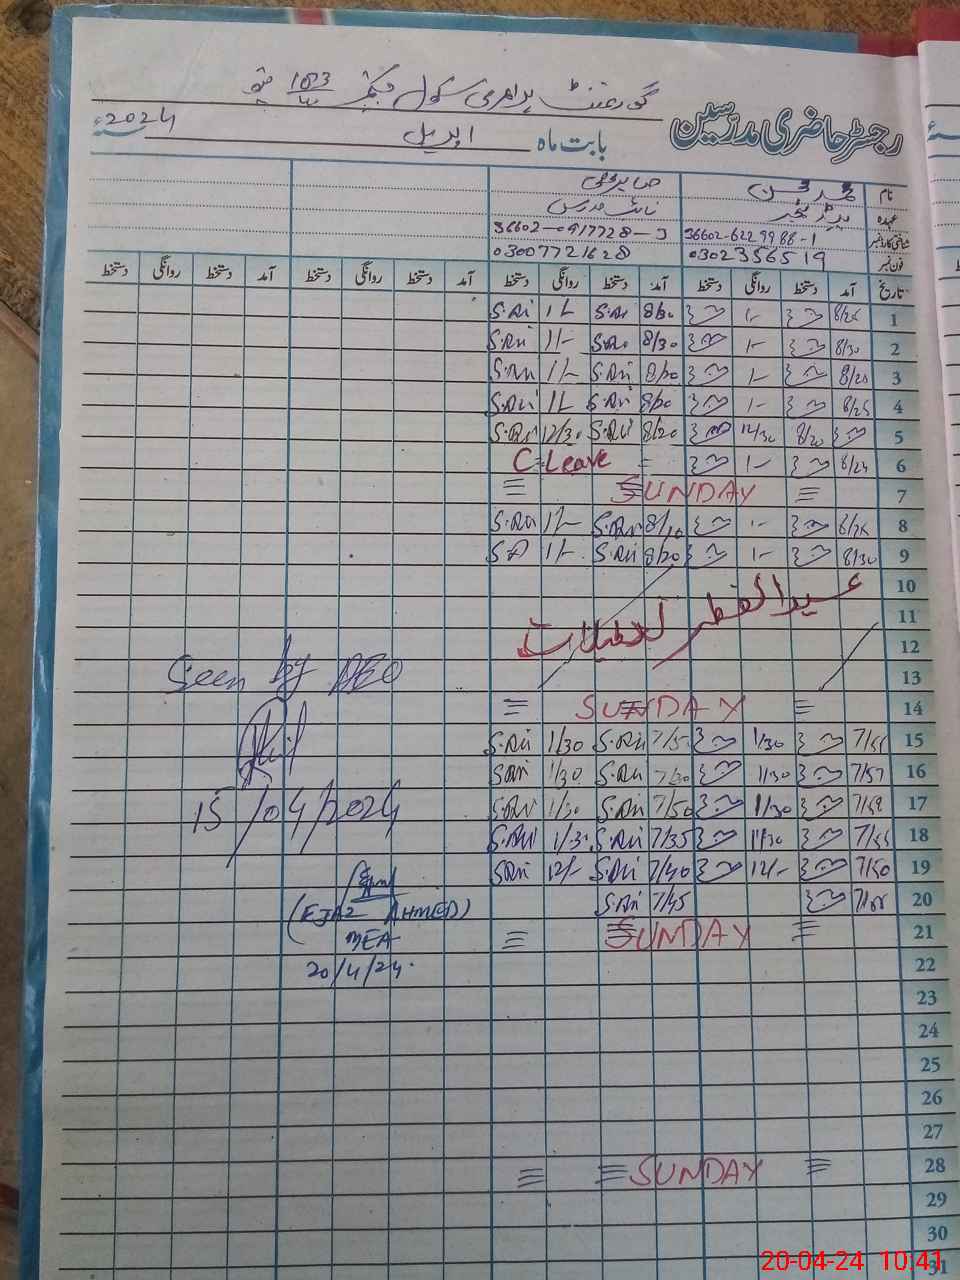 گورنمنٹ پرائمری سکول چکنمبر 103
رجسٹر حاضری مدرسین
بابت ماہ اپریل 2024ء
نام محمد حسن صابر علی
عہدہ ہیڈ ٹیچر نائب مدرس
شناختی کارڈ نمبر 36602-6229988-1 36602-0917728-3
فون نمبر 0302356519 03007721628
تاریخ آمد دستخط روانگی دستخط آمد دستخط روانگی دستخط آمد دستخط روانگی دستخط آمد دستخط روانگی دستخط
1 8/25 1- 8/20 S.Ali 1/- S.Ali
2 8/30 1- 8/30 S.Ali 1/- S.Ali
3 8/20 1- 8/20 S.Ali 1/- S.Ali
4 8/25 1- 8/20 S.Ali 1/- S.Ali
5 8/20 12/30 8/20 S.Ali 12/30 S.Ali
6 8/24 1- C-Leave
7 SUNDAY
8 8/25 1- 8/10 S.Ali 1/- S.Ali
9 8/30 1- 8/20 S.Ali 1/- SA
10
عیدالفطر تعطیلات
11
12
13
Seen by AEO
14 SUNDAY
15 7/55 1/30 7/5 S.Ali 1/30 S.Ali
16 7/57 1/30 7/30 S.Ali 1/30 S.Ali
17 7/58 1/30 7/50 S.Ali 1/30 S.Ali
15/04/2024
18 7/55 1/30 7/35 S.Ali 1/30 S.Ali
19 7/50 12/- 7/40 S.Ali 12/- S.Ali
20 7/55 7/45 S.Ali
(EJAZ AHMED)
21 SUNDAY
MEA
22
20/4/24.
23
24
25
26
27
28 SUNDAY
29
30
31
20-04-24 10:41